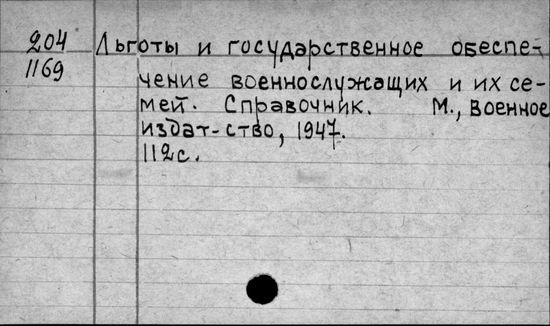 204 Льготы и государственное обеспе-
1169 чение военнослужащих и их се-
мей. Справочник. М., Военное
издат-ство, 1947.
112с.